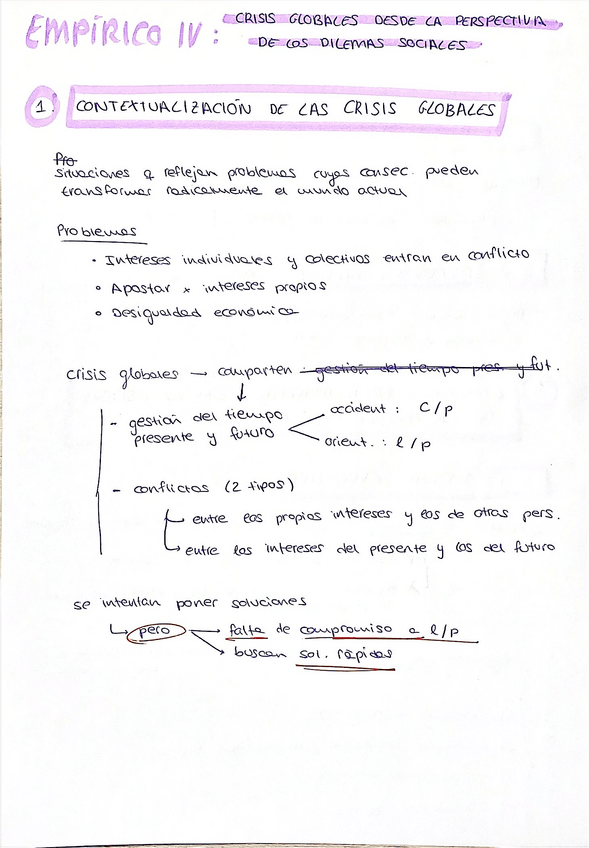 EMPÍRICO IV: CRISIS GLOBALES DESDE LA PERSPECTIVA
DE LOS DILEMAS SOCIALES
1. CONTEXTUALIZACIÓN DE LAS CRISIS GLOBALES
Pro
situaciones q reflejan problemas cuyas consec. pueden
transformar radicalmente el mundo actual
Problemas
• Intereses individuales y colectivos entran en conflicto
• Apostar x intereses propios
• Desigualdad económica
crisis globales → comparten gestión del tiempo pres. y fut.
↓
- gestión del tiempo
presente y futuro
accident: c/p
orient.: l/p
- conflictos (2 tipos)
entre los propios intereses y los de otras pers.
entre los intereses del presente y los del futuro
se intentan poner soluciones
↳ pero → falta de compromiso a l/p
buscan sol. rápidas